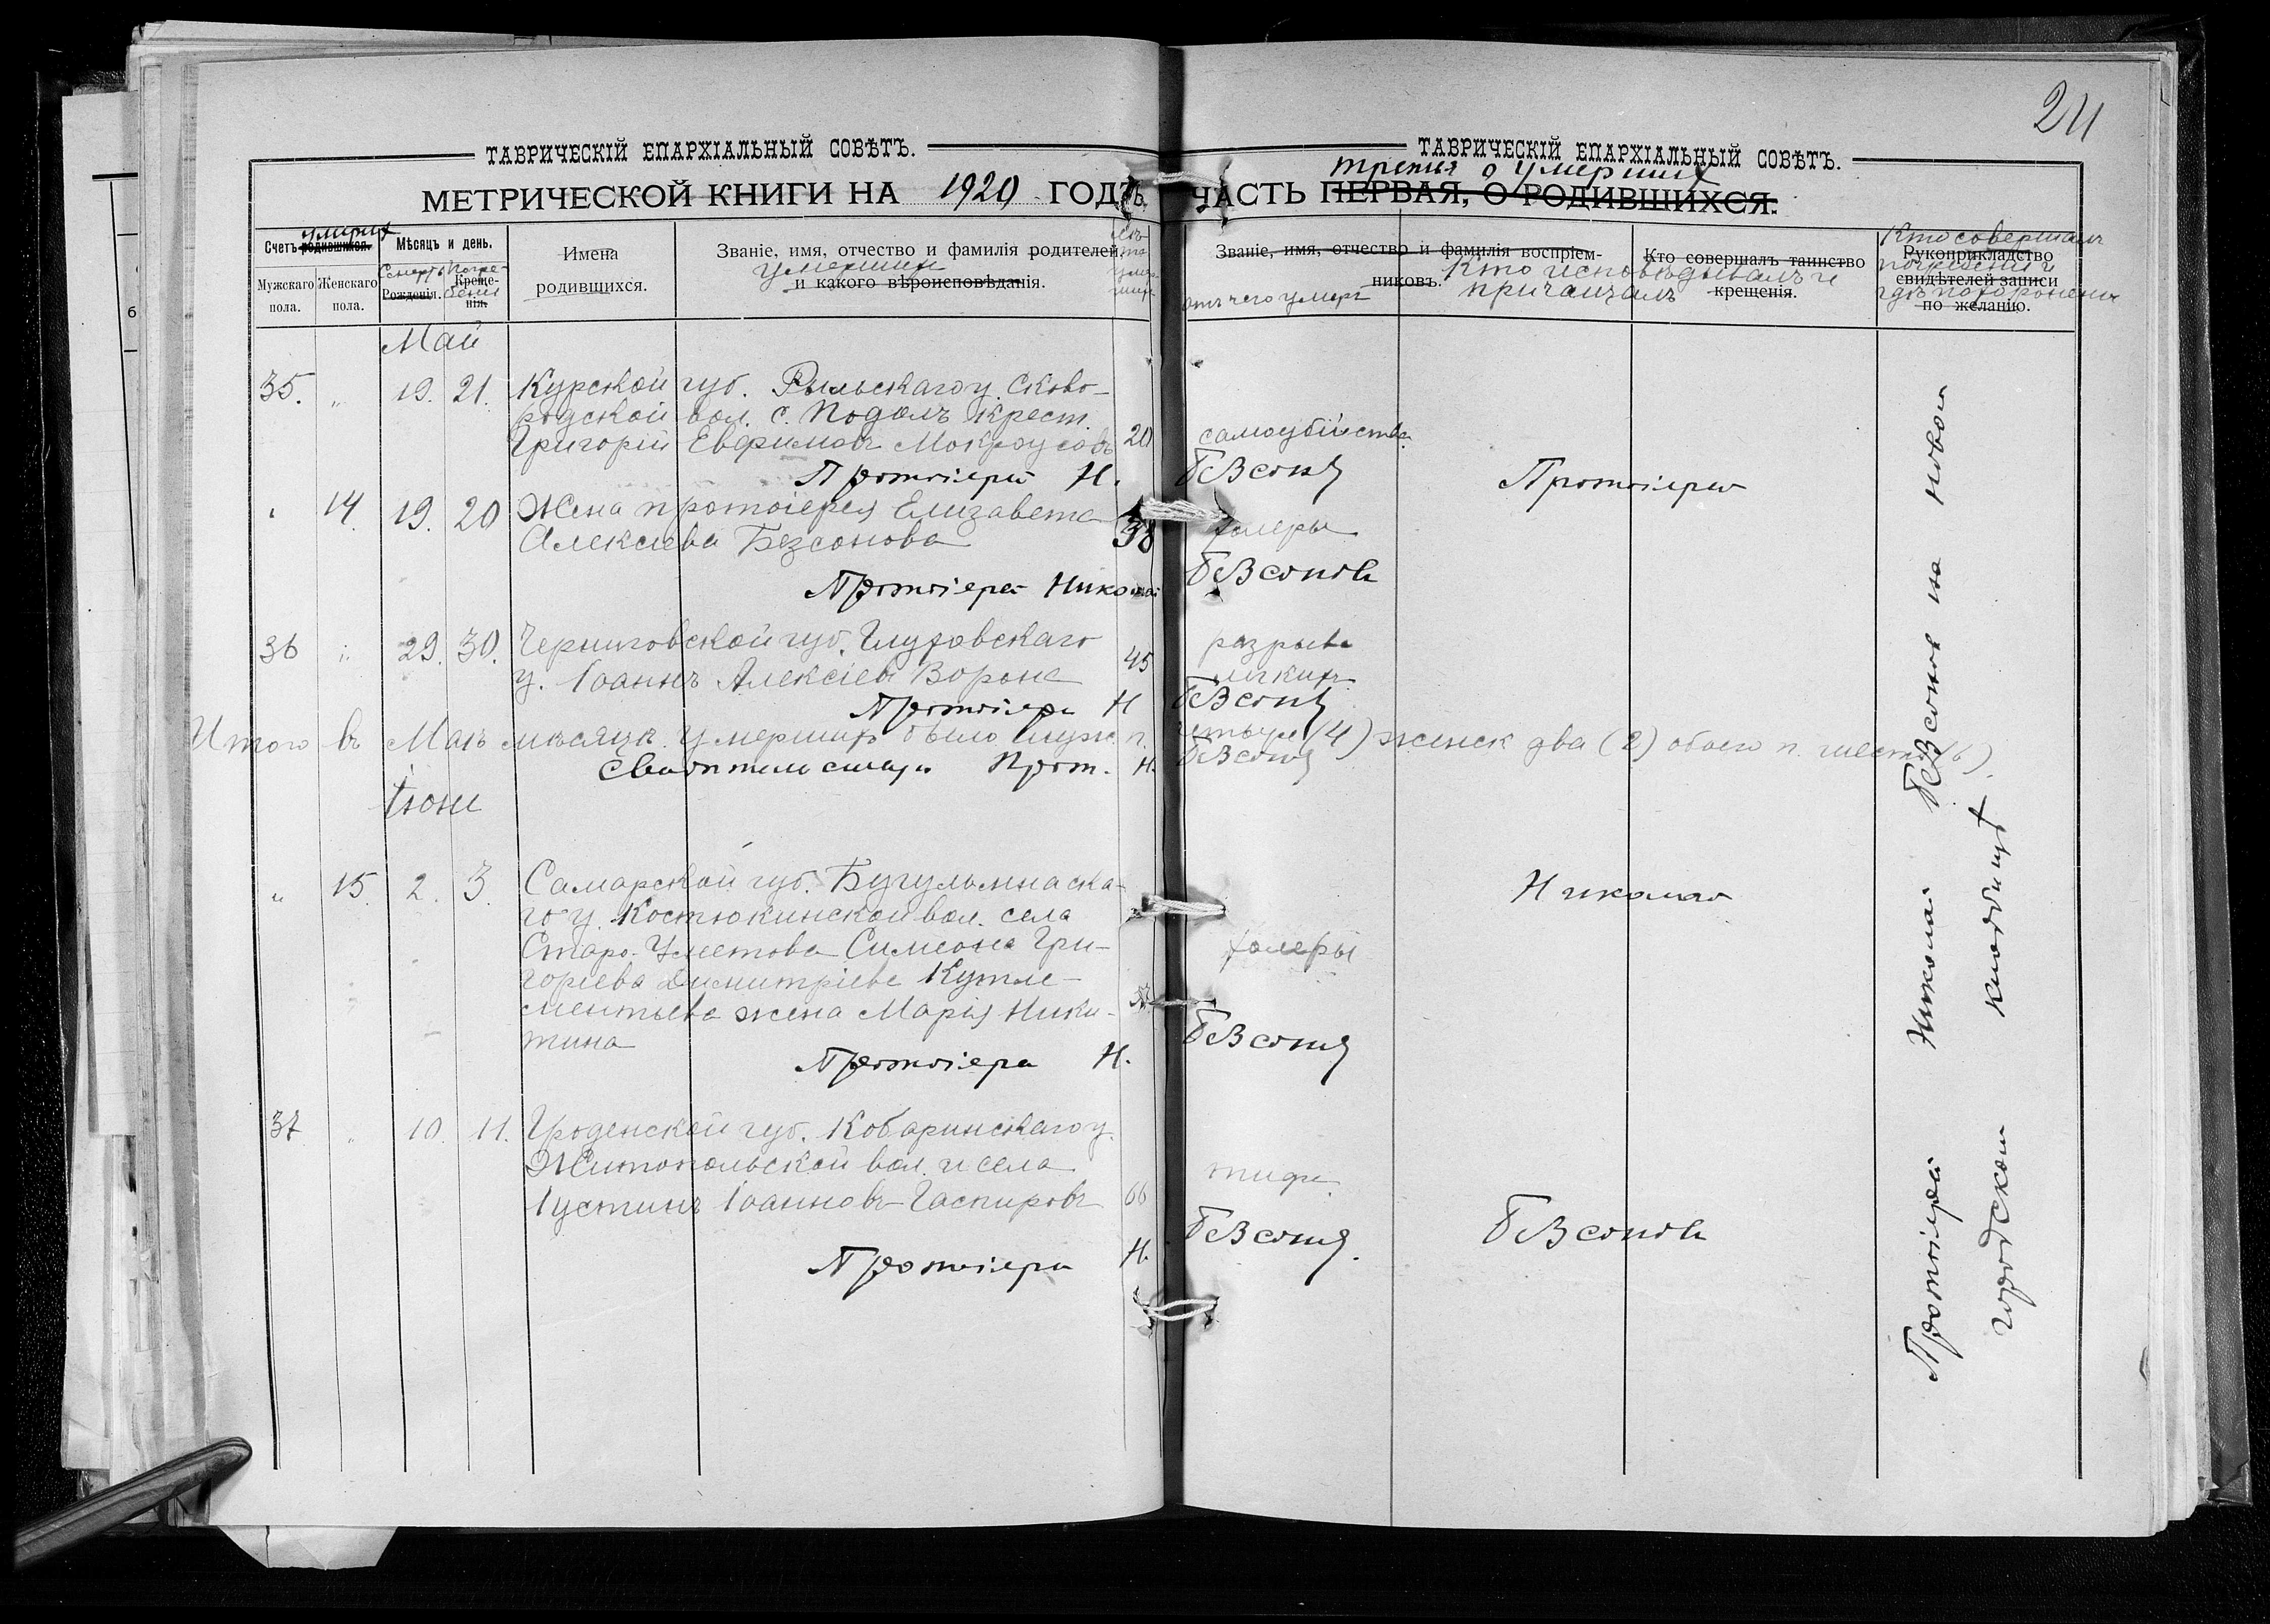 24
ТАВРИЧЕСКІЙ ЕПАРХІАЛЬНЫЙ СОВѢТЪ.
МЕТРИЧЕСКОЙ КНИГИ НА 1920 ГОДЪ
Счетъ родившихся. умерших
Мужскаго пола.
Женскаго пола.
Мѣсяцъ и день.
Рожденія. Смерть
Крещенія. Погребенія
Имена родившихся.
Званіе, имя, отчество и фамилія родителей
умерших
и какого вѣроисповѣданія.
Май
35. " 19. 21. Курской губ. Рыльскаго у. Сково-
родской вол. с. Подолъ крест.
Григорій Евфимовъ Мокроусовъ 20
Протоіерей Н.
14 19. 20 Жена протоіерея Елизавета
Алексіева Безсонова 38
Протоіерей Николай
36 " 29. 30. Черниговской губ. Глуховскаго
у. Іоаннъ Алексіевъ Ворона 45
Протоіерей Н
Итого въ Маѣ мѣсяцѣ умершихъ было муж. п.
Прот. Н.
Іюнь
" 15. 2. 3. Самарской губ. Бугульминска-
го у. Костюкинской вол. села
Старо-Уметова Симеона Гри-
горіева Димитріева Кутле-
ментьева жена Марія Ники-
тина
Протоіерей Н.
37 " 10. 11. Гроденской губ. Кобаринскаго у.
Житопольской вол. и села
Іустинъ Іоанновъ Гаспировъ 66
Протоіерей Н.
ТАВРИЧЕСКІЙ ЕПАРХІАЛЬНЫЙ СОВѢТЪ.
третья о умерших
ЧАСТЬ ПЕРВАЯ, О РОДИВШИХСЯ.
Званіе, имя, отчество и фамилія воспріем-
никовъ.
отъ чего умеръ
Кто исповѣдывалъ и
причащалъ
Кто совершалъ таинство
крещенія.
Кто совершалъ
погребеніе и
гдѣ похоронены
Рукоприкладство
свидѣтелей записи
по желанію.
самоубійство
Безсонов
Протоіерей
холеры
Безсонов
разрыва
Безсонов
четыре (4) женск два (2) обоего п. шесть (6).
Безсонов
Николай
холеры
Безсонов
тифа
Безсонов.
Безсонов
Протоіерей Николай Безсонов на новом
городском кладбищѣ